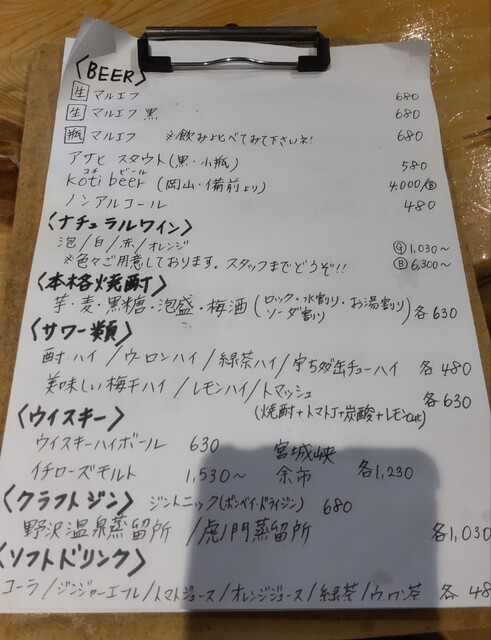 〈BEER〉
生 マルエフ 680
生 マルエフ 黒 680
瓶 マルエフ ※飲みよべてみて下さいネ! 680
アサヒ スタウト(黒・小瓶) 580
コチ ビール
koti beer (岡山・備前より) 4,000/B
ノンアルコール 480
〈ナチュラルワイン〉
泡/白/赤/オレンジ G 1,030~
※色々ご用意しております。スタッフまでどうぞ!! B 6,300~
〈本格焼酎〉
芋・麦・黒糖・泡盛・梅酒(ロック・水割り・お湯割り・ソーダ割り) 各630
〈サワー類〉
酎ハイ/ウーロンハイ/緑茶ハイ/宇ち多缶チューハイ 各480
美味しい梅干ハイ/レモンハイ/トマッシュ 各630
(焼酎+トマトJ+炭酸+レモンcut)
〈ウイスキー〉
ウイスキーハイボール 630 宮城峡
イチローズモルト 1,530~ 余市 各1,230
〈クラフトジン〉 ジントニック(ボンベイ・ドライジン) 680
野沢温泉蒸留所 /虎ノ門蒸留所 各1,030
〈ソフトドリンク〉
コーラ/ジンジャーエール/トマトジュース/オレンジジュース/緑茶/ウーロン茶 各48